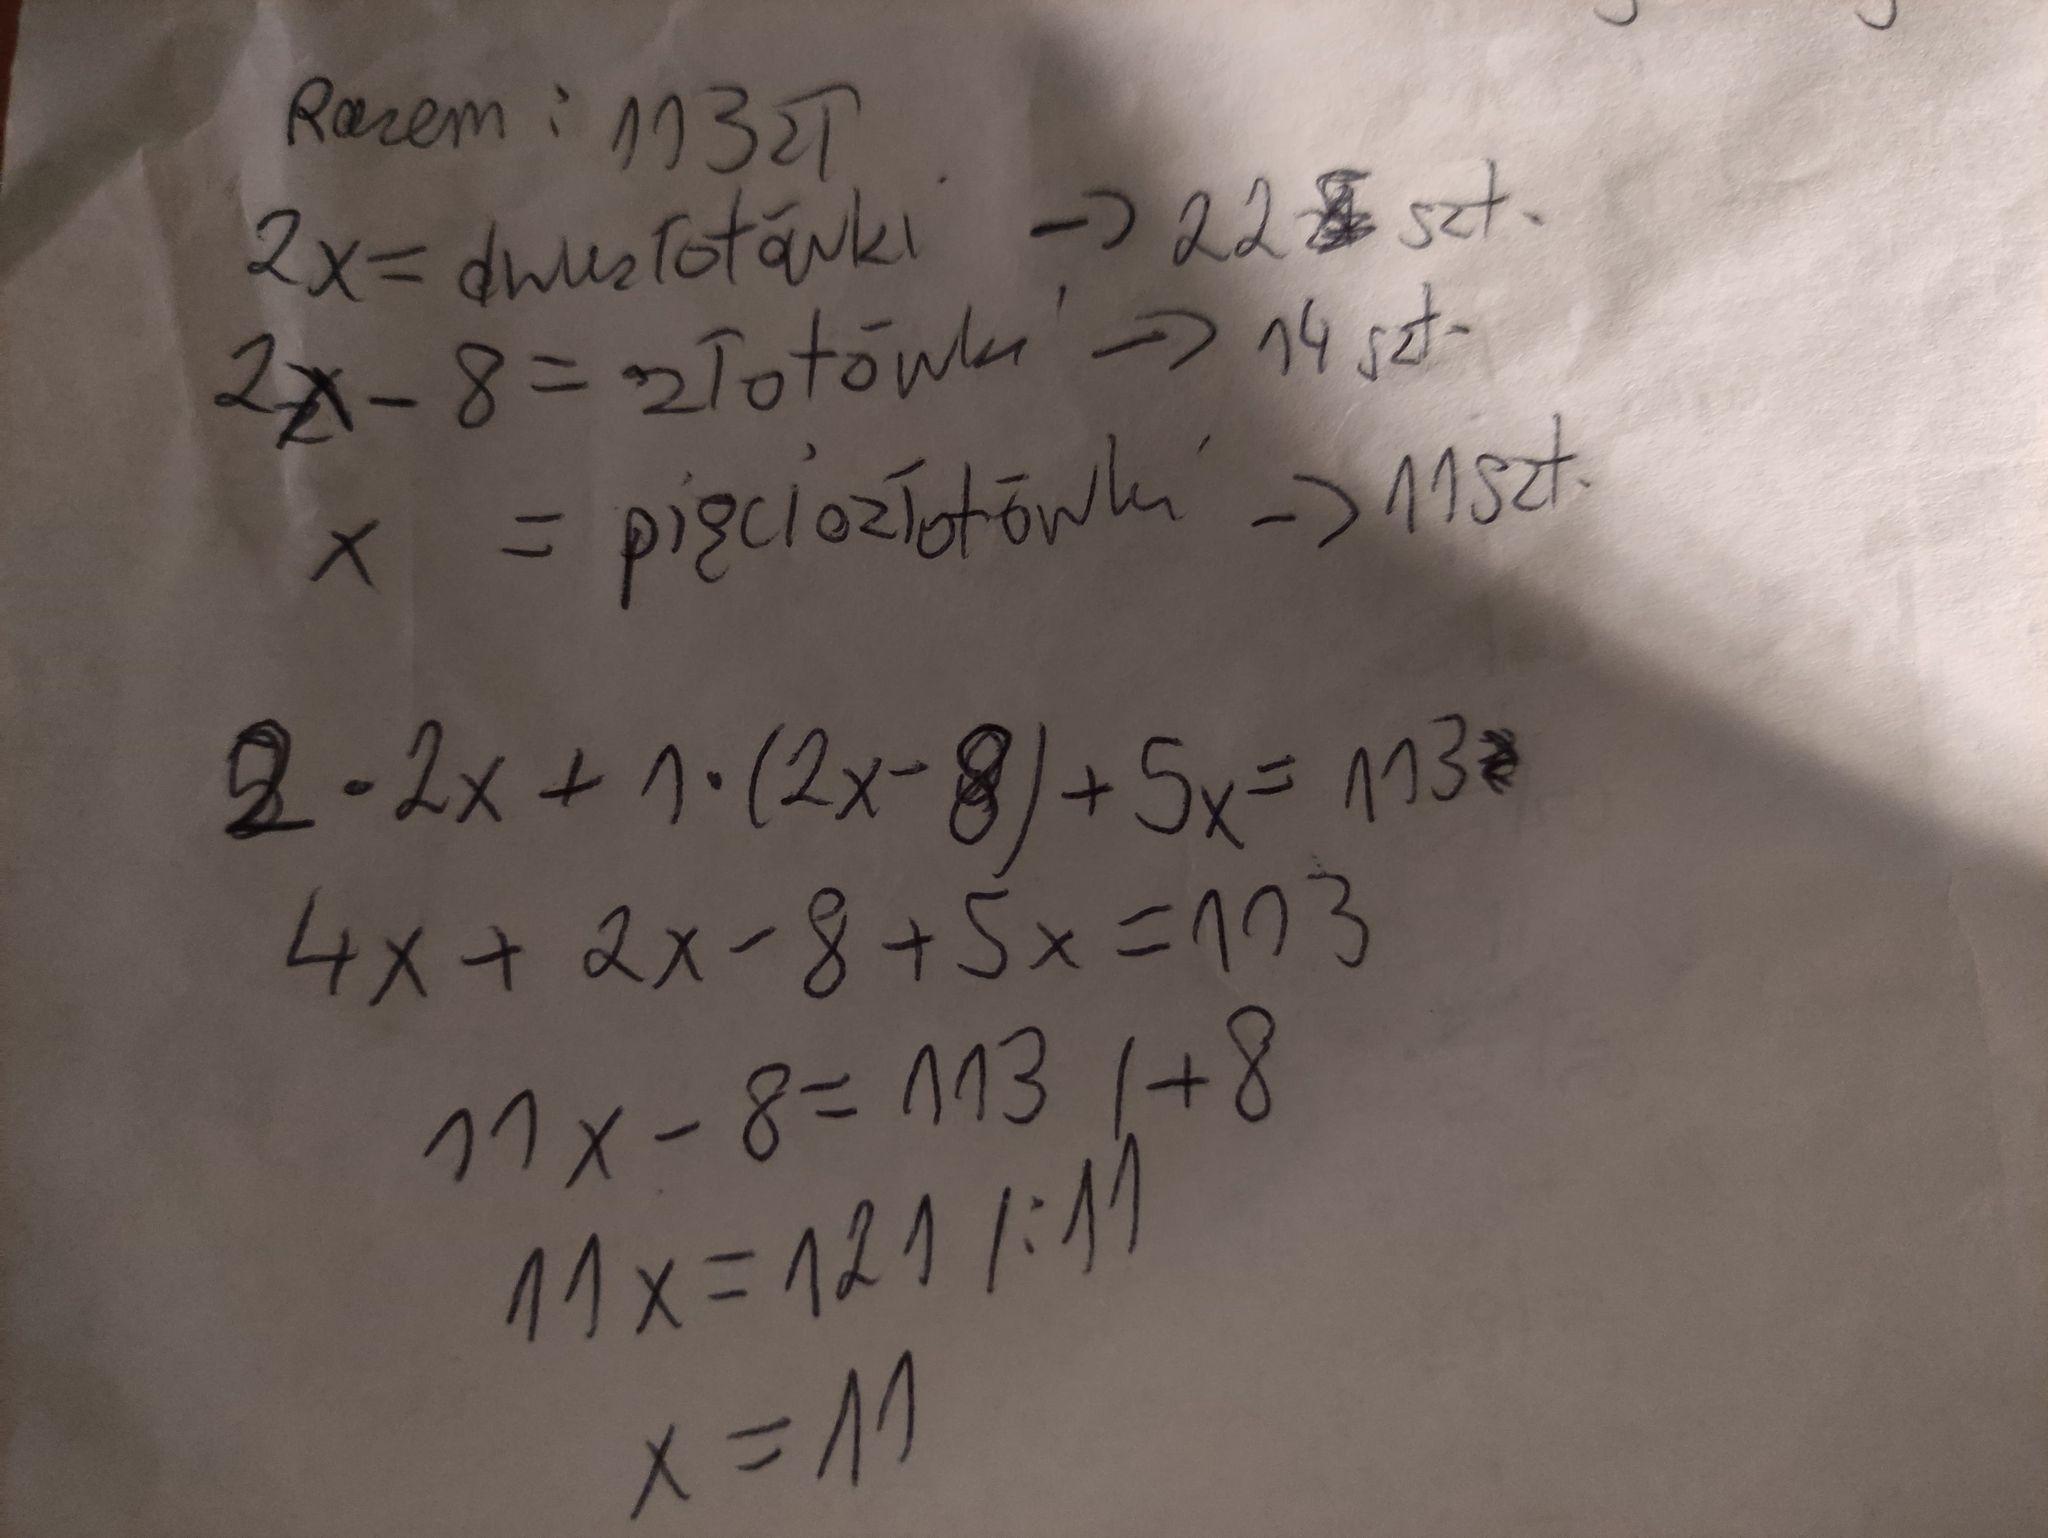 Razem: 113 zł
2x = dwuzłotówki -> 22 szt.
2x - 8 = złotówki -> 14 szt.
x = pięciozłotówki -> 11 szt.
2 · 2x + 1 · (2x - 8) + 5x = 113
4x + 2x - 8 + 5x = 113
11x - 8 = 113 /+8
11x = 121 /:11
x = 11